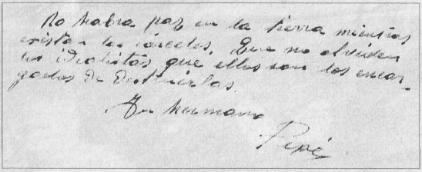 No habra paz en la tierra mientras
existan las cárceles. Que no olviden
los idealistas que ellos son los encar-
gados de destruirlas.
Tu hermano
Pepe